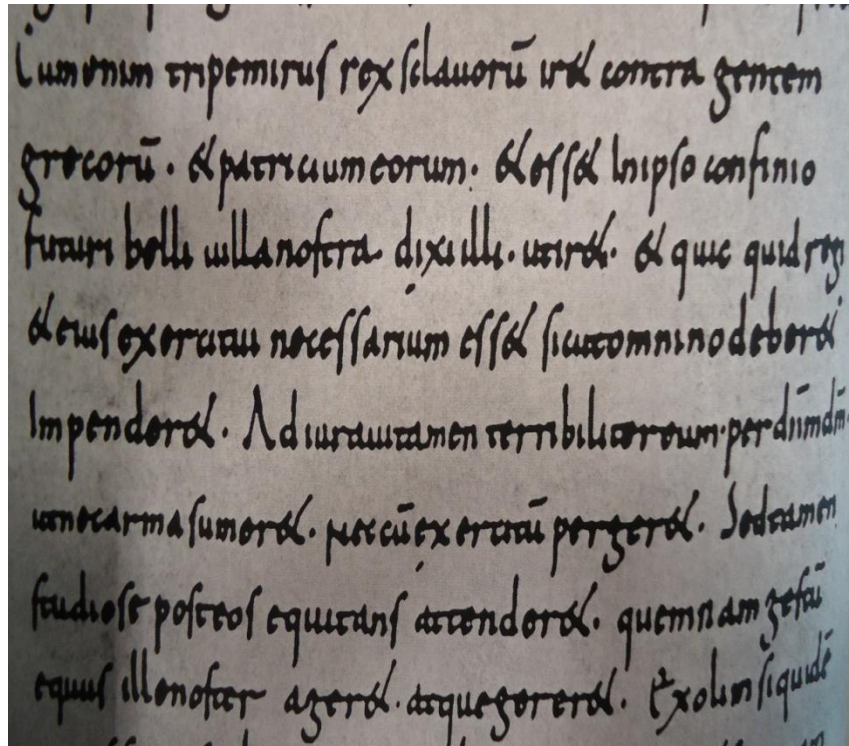 Cum enim tripemirus rex sclauorū iret contra gentem
grecorū · et patricium eorum · et esset In ipso confinio
futuri belli uilla nostra · dixi illi · ut iret · et quic quid regi
et eius exercitui necessarium esset sicut omnino deberet
Impenderet · Adiuraui tamen terribiliter eum · per dn̄m dm̄ ·
ut nec arma sumeret · nec cū exercitū pergeret · Sed tamen
studiose post eos equitans attenderet · quem nam gestū
equus ille noster ageret · atque gereret · Ex olim siquidē